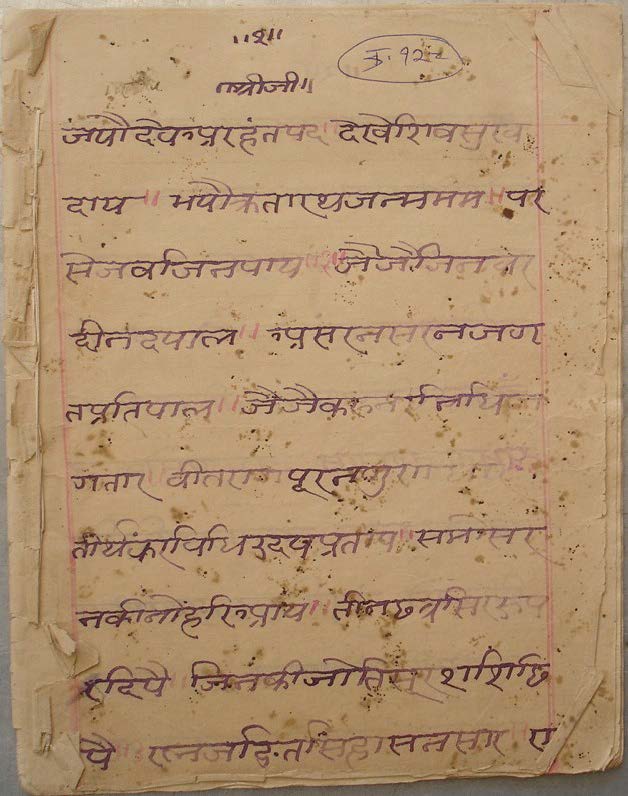 ॥१॥
अ.१२२
॥श्रीजी॥
जंपौ देव अरहंत पद देखै शिव सुख
दाय ॥ भयौ क्रतारथ जन्म मम ॥ पर
से जब जिन पाय ॥१॥ जै जै जिनवर
दीन दयाल ॥ असरन सरन जग
त प्रतिपाल ॥ जै जै करुना
गतार वीतराग पूरन गुण
तीर्थंकर विधि उदय प्रताप ॥ समोसर
न कीनों हरि आय ॥ तीन छत्र सिर ऊप
र दिपै जिन की जोति सूर शशि छि
पै रत्न जडित सिंहासन सार ए